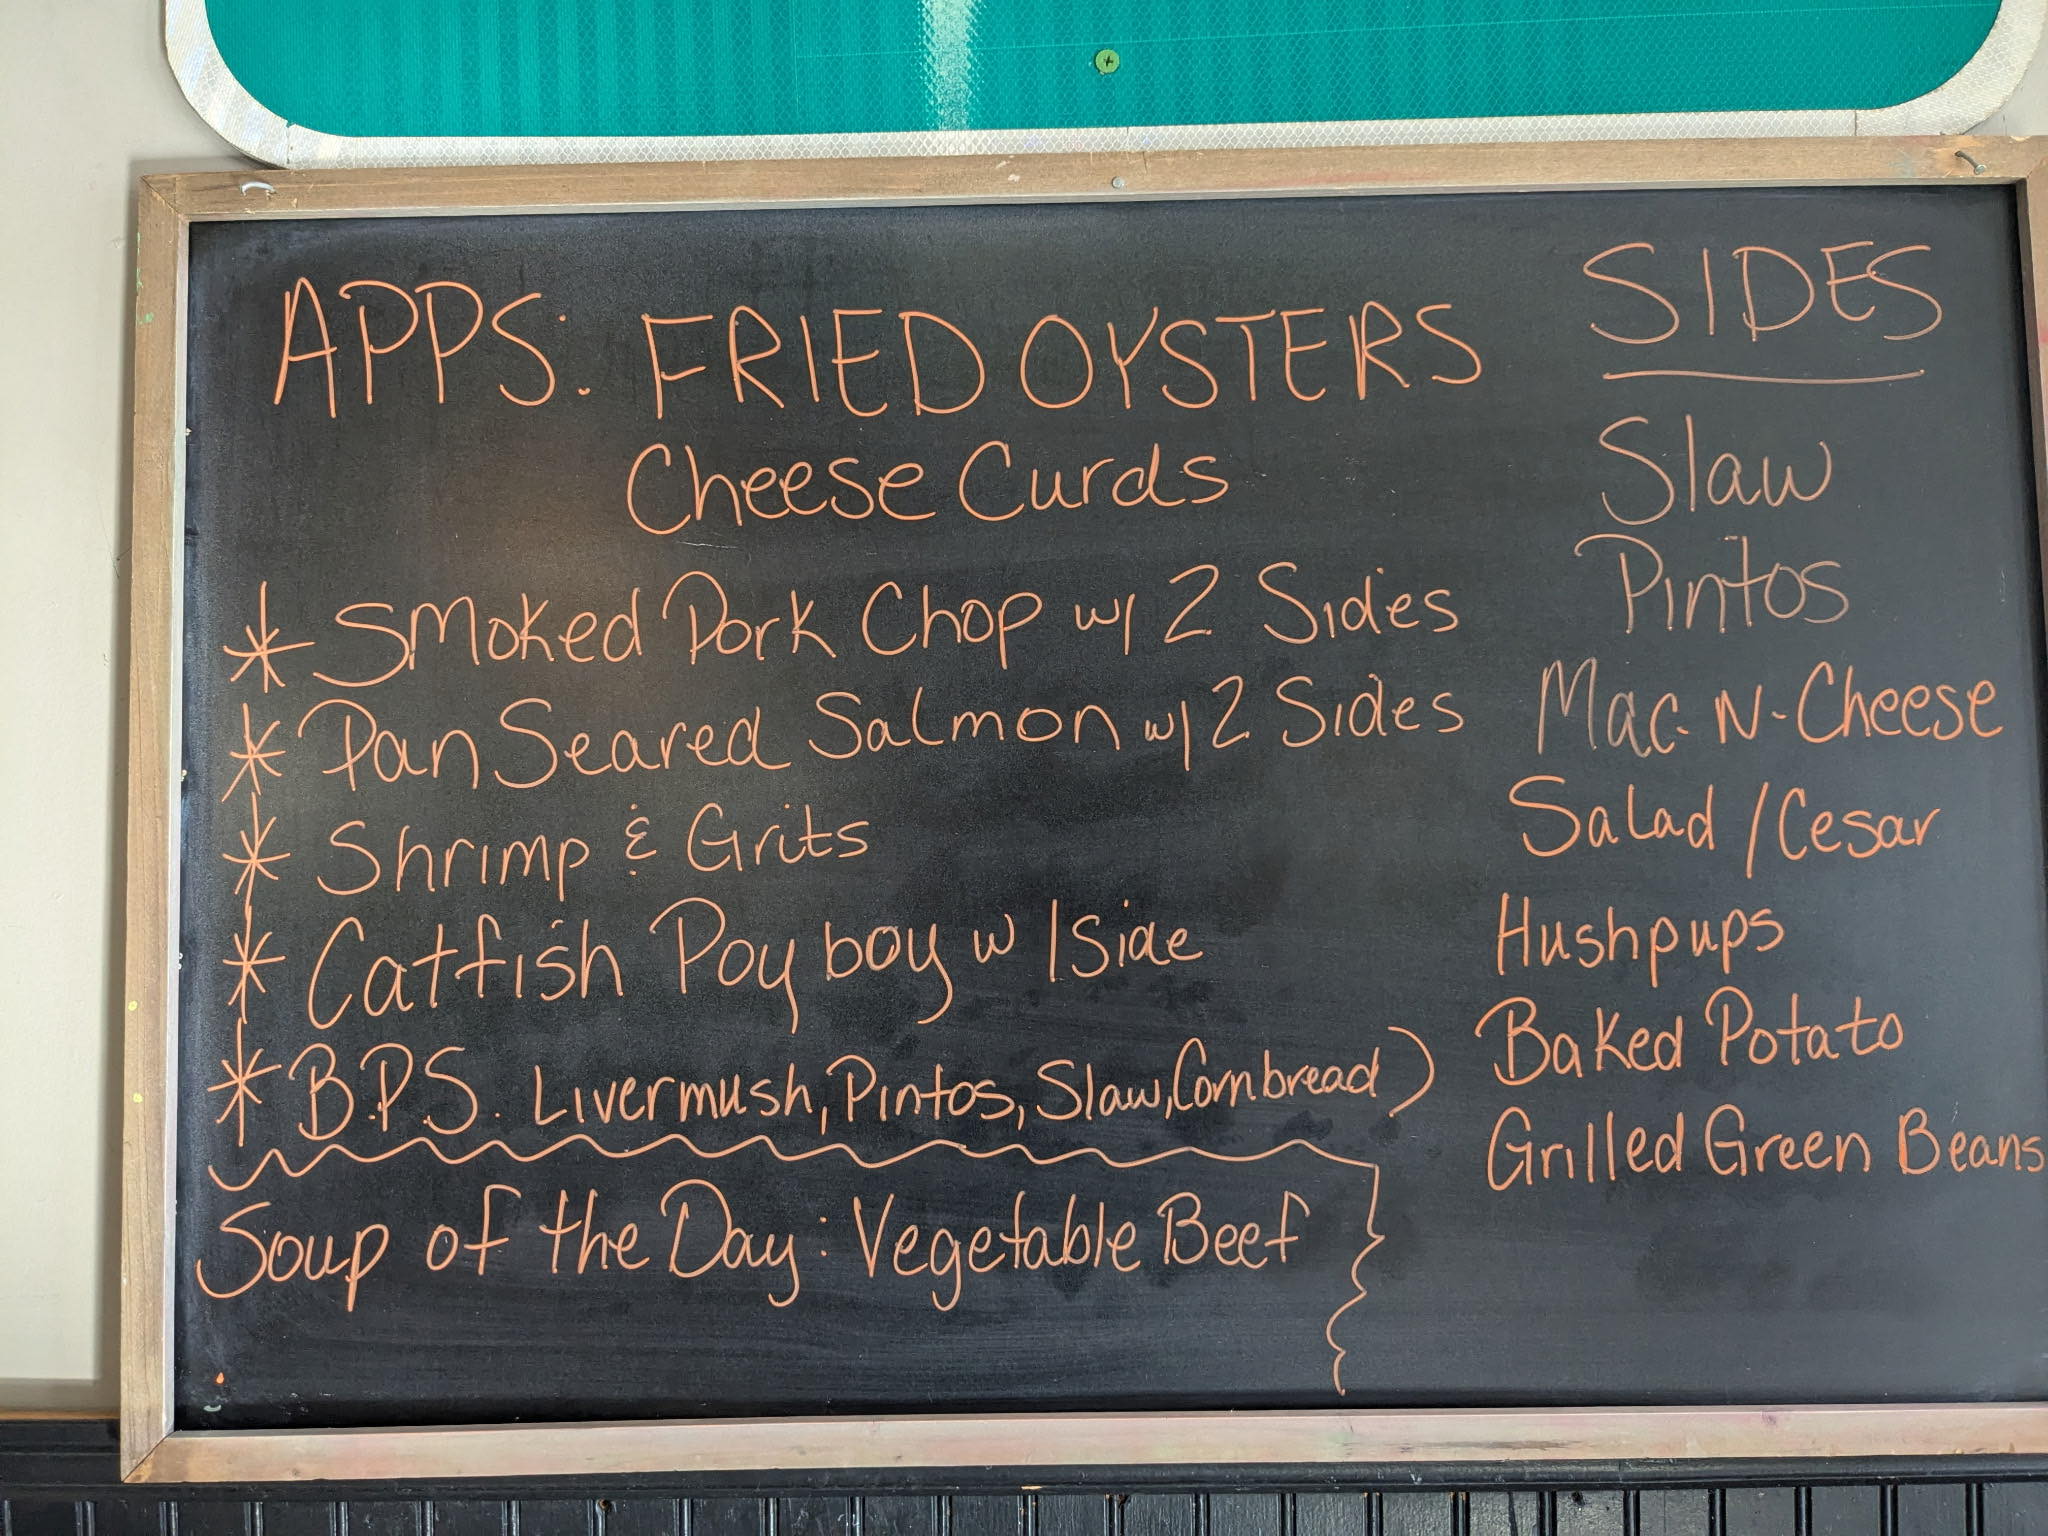 APPS: FRIED OYSTERS
Cheese Curds
* Smoked Pork Chop w/ 2 Sides
* Pan Seared Salmon w/ 2 Sides
* Shrimp & Grits
* Catfish Poy boy w 1 Side
* B.P.S. Livermush, Pintos, Slaw, Cornbread)
Soup of the Day: Vegetable Beef
SIDES
Slaw
Pintos
Mac-N-Cheese
Salad / Cesar
Hushpups
Baked Potato
Grilled Green Beans